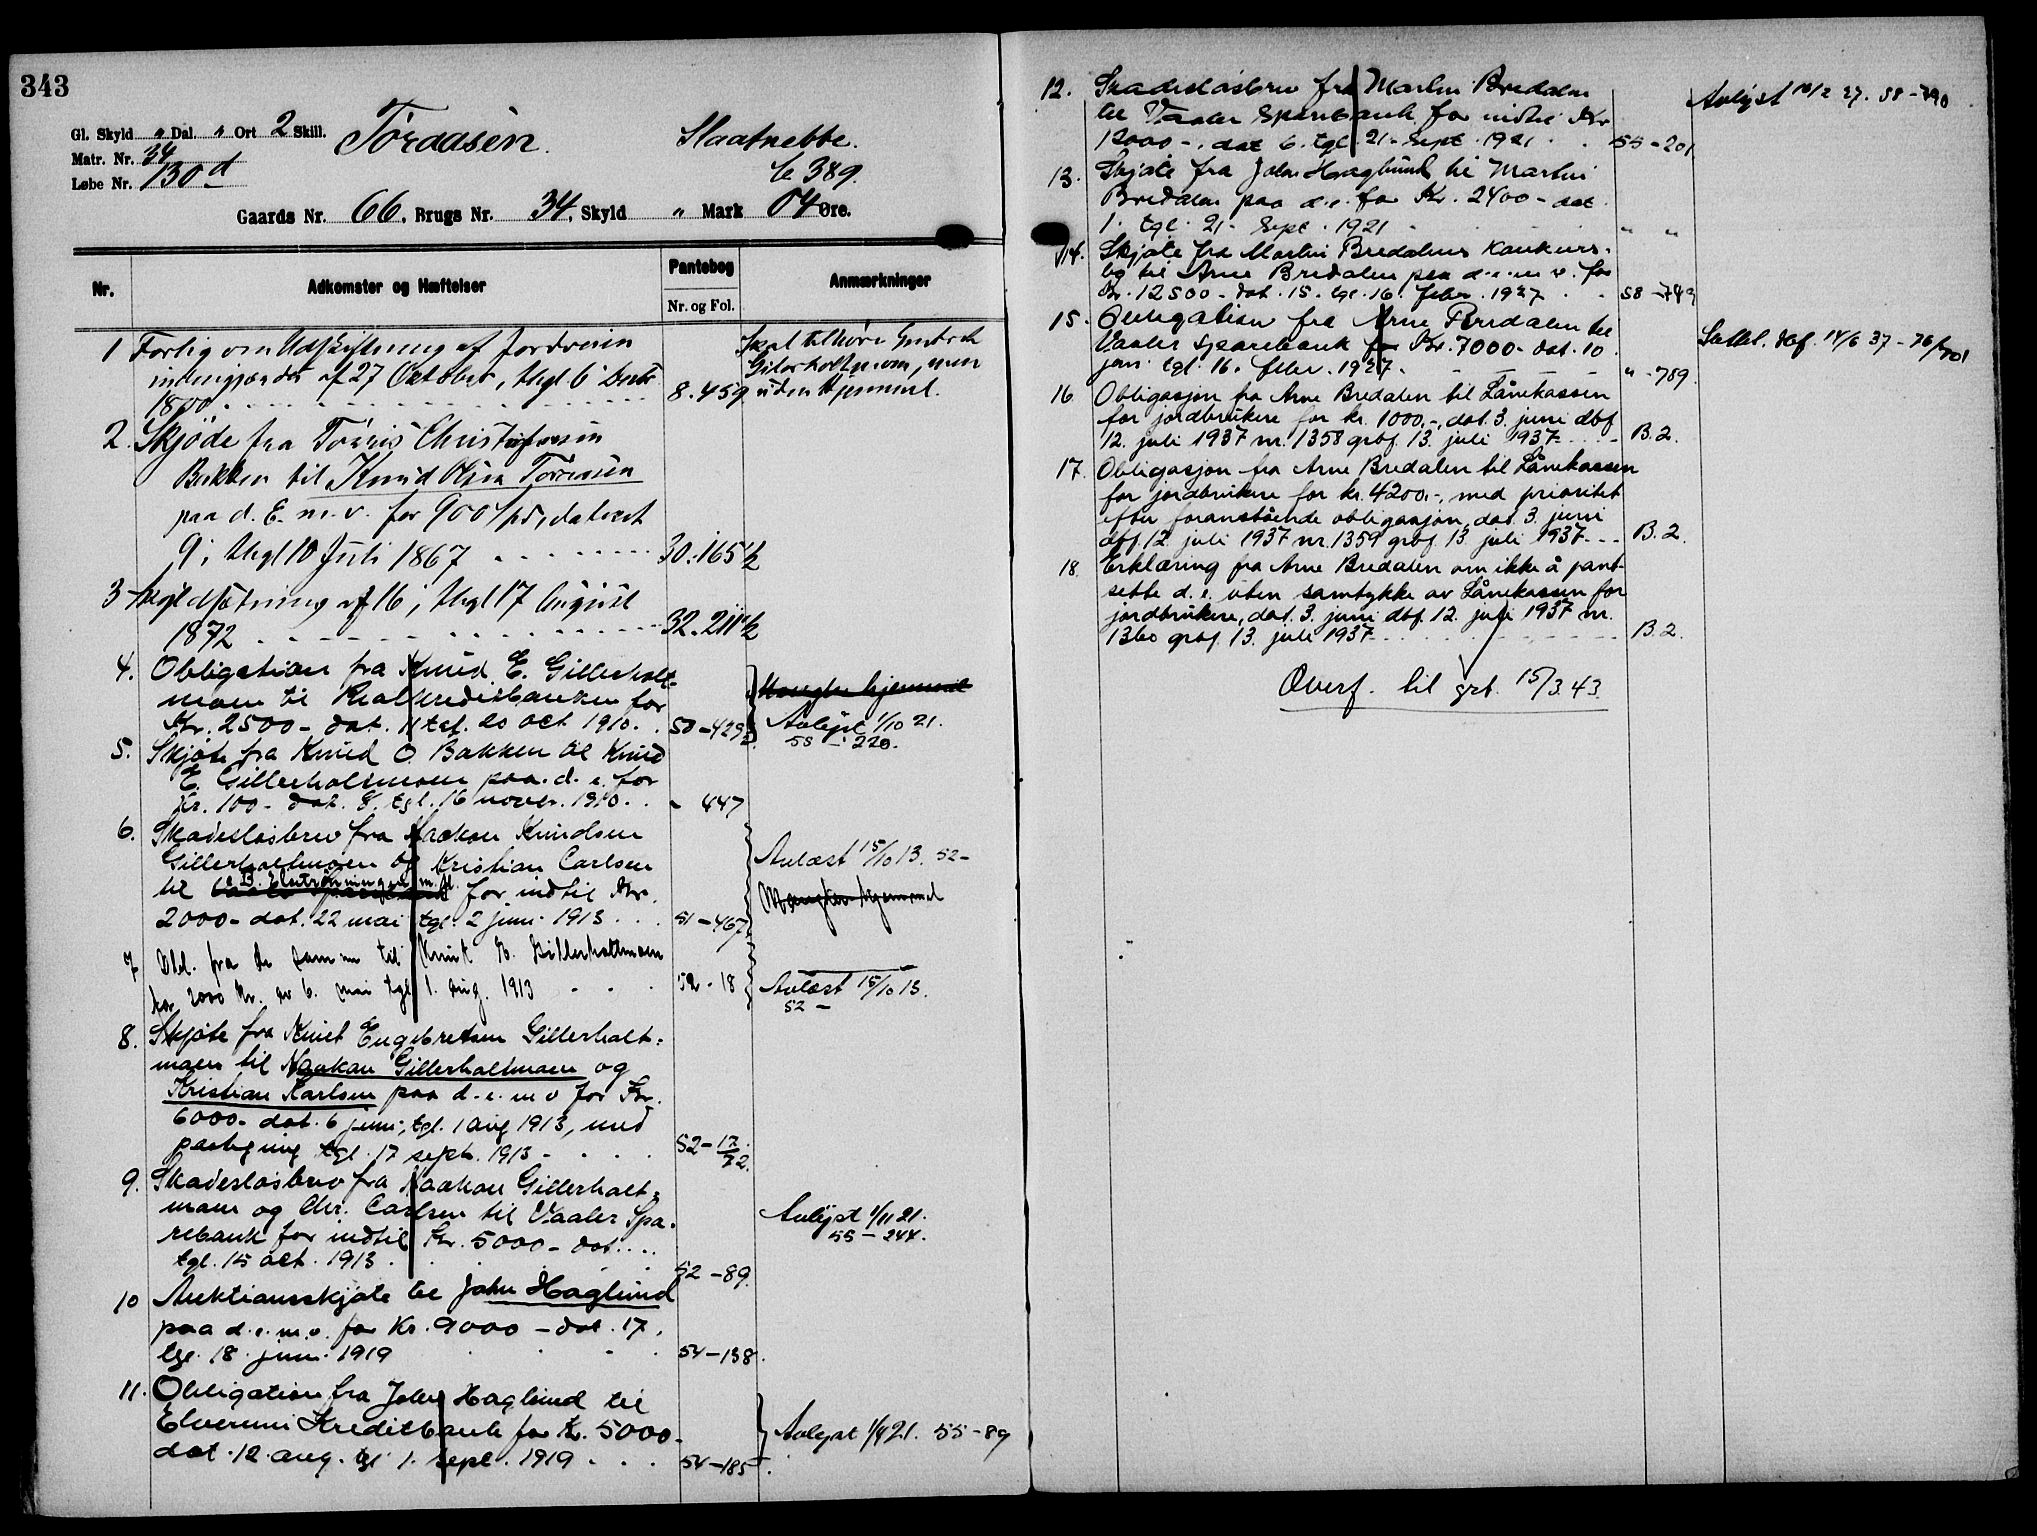 343
Gl. Skyld " Dal. " Ort 2 Skill.
Matr. Nr. 34
Løbe Nr. 130 d
Tøraasen.
Slaatnebbe.
b 389.
Gaards Nr. 66, Brugs Nr. 34, Skyld " Mark 04 Øre.
Nr.
Adkomster og Hæftelser
Pantebog
Nr. og Fol.
Anmærkninger
1 Forlig om Udskiftning af Jordveien
af 27 Oktober, thgl 6 Decbr
1800. 8.459
Skal tilhøre
Gilerholtmoen, men
uden Hjemmel.
2. Skjøde fra Tørris Christofersen
Bakken til Knud Olsen Tøraasen
paa d. E. m. v. for 900 spd, dateret
9, thgl 10 Juli 1867 30.165b
3 af 16, thgl 17 August
1872 32.211b
4. Obligation fra Knud E. Gillerholt-
moen til Realkreditbanken for
Kr. 2500 - dat. 11 tgl. 20 oct 1910. 50-429
Mangler hjemmel
Avlyst 1/10 21.
55 - 220.
5. Skjøte fra Knud O. Bakken til Knud
E. Gillerholtmoen paa d. e. for
Kr. 100 - dat. 8. tgl. 16 novbr. 1910. " 447
6. Skadesløsbrev fra Haakon Knudsen
Gillerholtmoen og Kristian Carlsen
til for indtil Kr.
2000 - dat. 22 mai tgl. 2 juni 1913 51-467
Avlæst 15/10 13. 52-
Mangler hjemmel
7 Obl. fra de samme til Knut E. Gillerholtmoen
for 2000 kr. av 6. mai tgl 1. aug. 1913 52-18
Avlæst 15/10 13.
52 -
8. Skjøte fra Knut Engebretsen Gillerholt-
moen til Haakon Gillerholtmoen og
Kristian Karlsen paa d. e. m v for Kr.
6000 - dat. 6 juni, tgl. 1 aug 1913, med
paategning tgl. 17 sept. 1913 - 52-17/72.
9. Skadesløsbrev fra Haakon Gillerholt-
moen og Chr. Carlsen til Vaaler Spa-
rebank for indtil Kr. 5000 - dat...
tgl. 15 oct. 1913. 52-89.
Avlyst 1/11 21.
55 - 244.
10 Auktionsskjøte til John Haglund
paa d. e. m. v. for Kr. 9000 - dat. 17.
tgl. 18. juni 1919 54-138.
11. Obligation fra John Haglund til
Elverum Kreditbank for Kr. 5000 -
dat. 12. aug. tgl 1. sept. 1919 54-185.
Avlyst 1/4 21. 55-89
12. Skadesløsbrev fra Martin Bredalen
til Vaaler Sparebank for indtil Kr
12000 -. dat 6. tgl. 21. Sept. 1921 55-201
Avlyst 16/2 27. 58-790
13. Skjøte fra John Haaglund til Martin
Bredalen paa d. e. for Kr. 2400 - dat
1. tgl. 21. Sept. 1921 " "
14. Skjøte fra Martin Bredalens konkurs-
bo til Arne Bredalen paa d. e. m v. for
Kr. 12500 - dat. 15. tgl. 16. febr. 1927 58-789
15. Obligation fra Arne Bredalen til
Vaaler Sparebank for Kr. 7000 - dat. 10
jan. tgl. 16. febr. 1927. " -789.
Slettet. dbf. 14/6 37 - 76/701
16 Obligasjon fra Arne Bredalen til Lånekassen
for jordbrukere for kr. 1000,-, dat. 3. juni dbf
12. juli 1937 nr. 1358 grbf. 13. juli 1937 B.2.
17. Obligasjon fra Arne Bredalen til Lånekassen
for jordbrukere for kr. 4200,-, med prioritet
efter foranstående obligasjon, dat. 3. juni
dbf. 12. juli 1937 nr. 1359 grbf. 13. juli 1937 B.2.
18. Erklæring fra Arne Bredalen om ikke å pant-
sette d. e. uten samtykke av Lånekassen for
jordbrukere, dat. 3. juni dbf. 12. juli 1937 nr.
1360 grbf. 13. juli 1937 B.2.
Overf. til grb. 15/3.43.